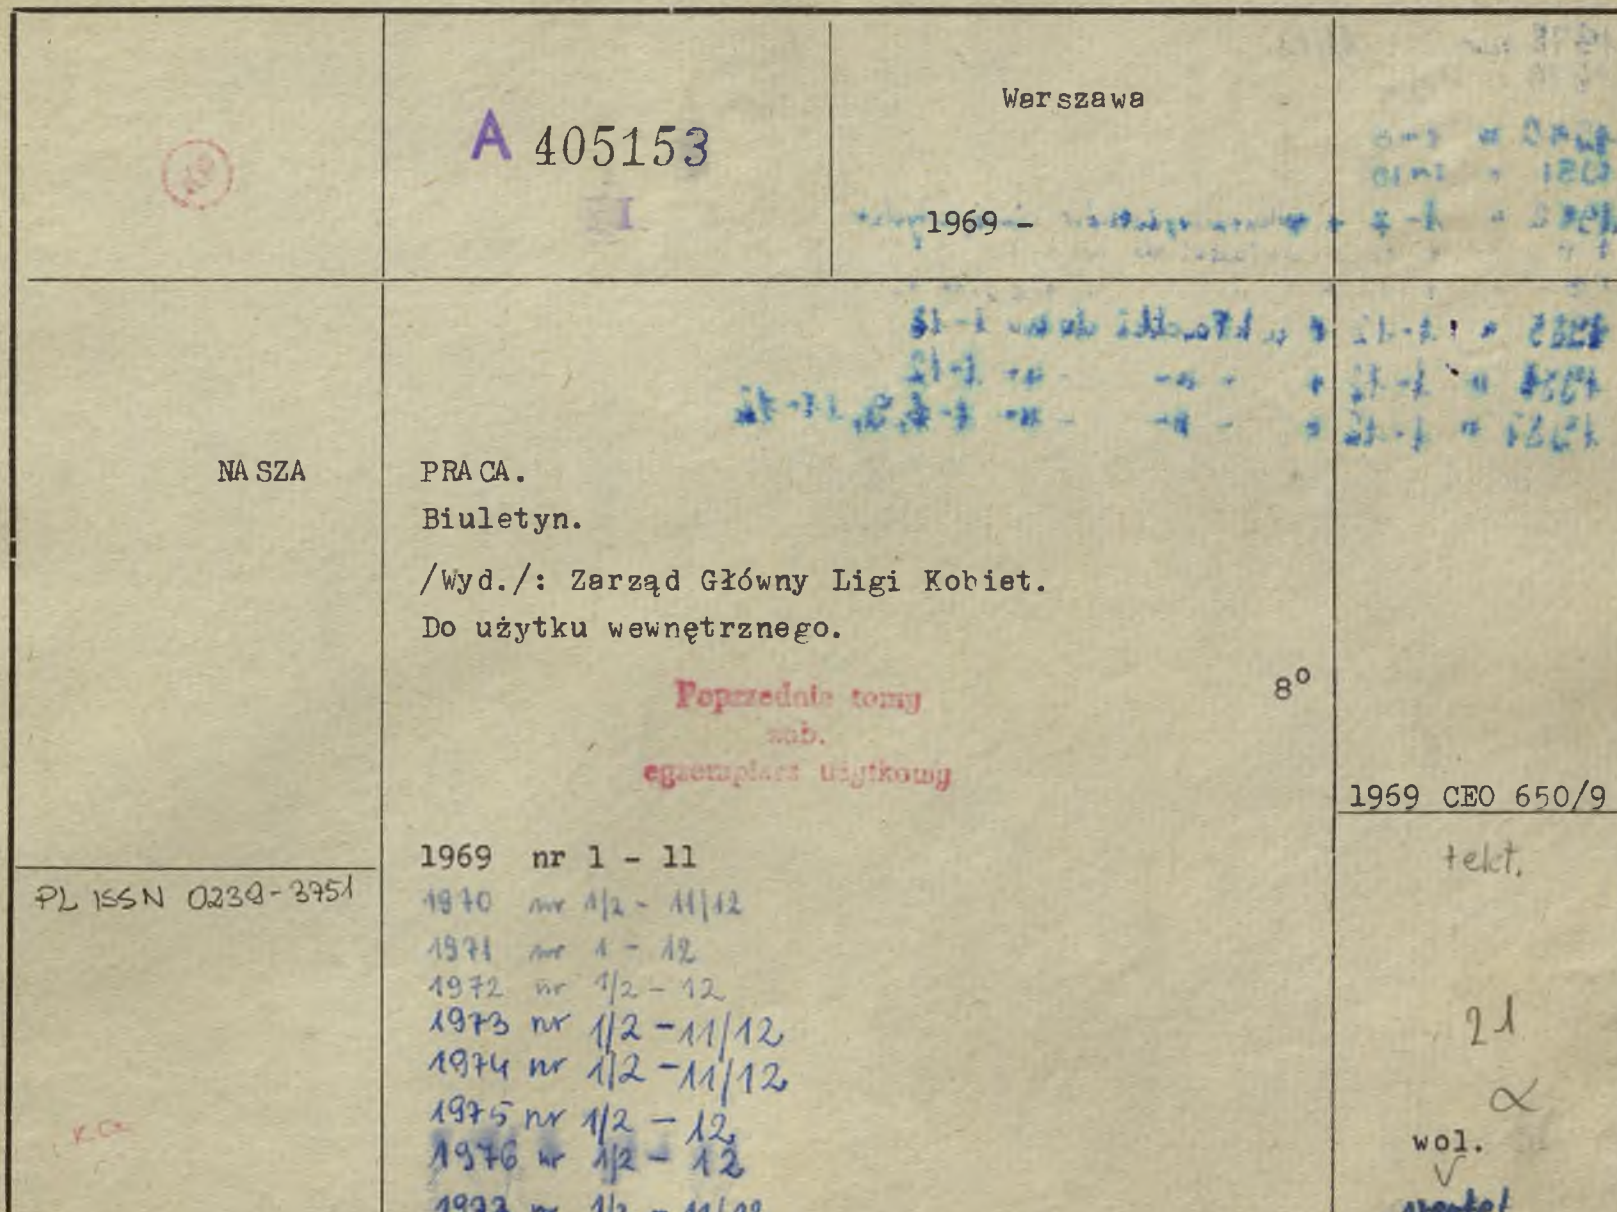 A 405153
Warszawa
1969 -
NASZA PRACA.
Biuletyn.
/Wyd./: Zarząd Główny Ligi Kobiet.
Do użytku wewnętrznego.
8°
Poprzednie tomy
zob.
egzemplarz użytkowy
1969 CEO 650/9
1969 nr 1 - 11
tekt.
PL ISSN 0239-3751
1970 nr 1/2 - 11/12
1971 nr 1 - 12
1972 nr 1/2 - 12
1973 nr 1/2 - 11/12
21
1974 nr 1/2 - 11/12
α
1975 nr 1/2 - 12
wol.
1976 nr 1/2 - 12
1977 nr 1/2 - 11/12